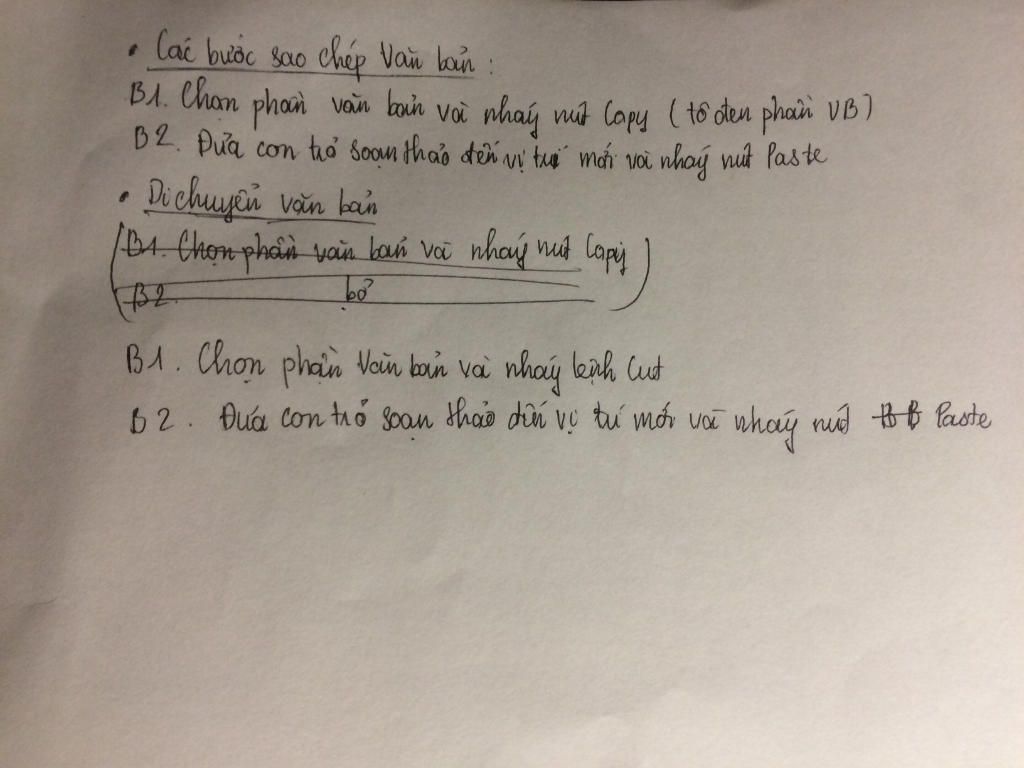 • Các bước sao chép Văn bản :
B1. Chọn phần văn bản và nháy nút Copy ( tô đen phần VB )
B2. Đưa con trỏ soạn thảo đến vị trí mới và nháy nút Paste
• Di chuyển văn bản
( B1. Chọn phần văn bản và nháy nút Copy )
B2. bỏ
B1. Chọn phần Văn bản và nháy lệnh Cut
B2. Đưa con trỏ soạn thảo đến vị trí mới và nháy nút B B Paste